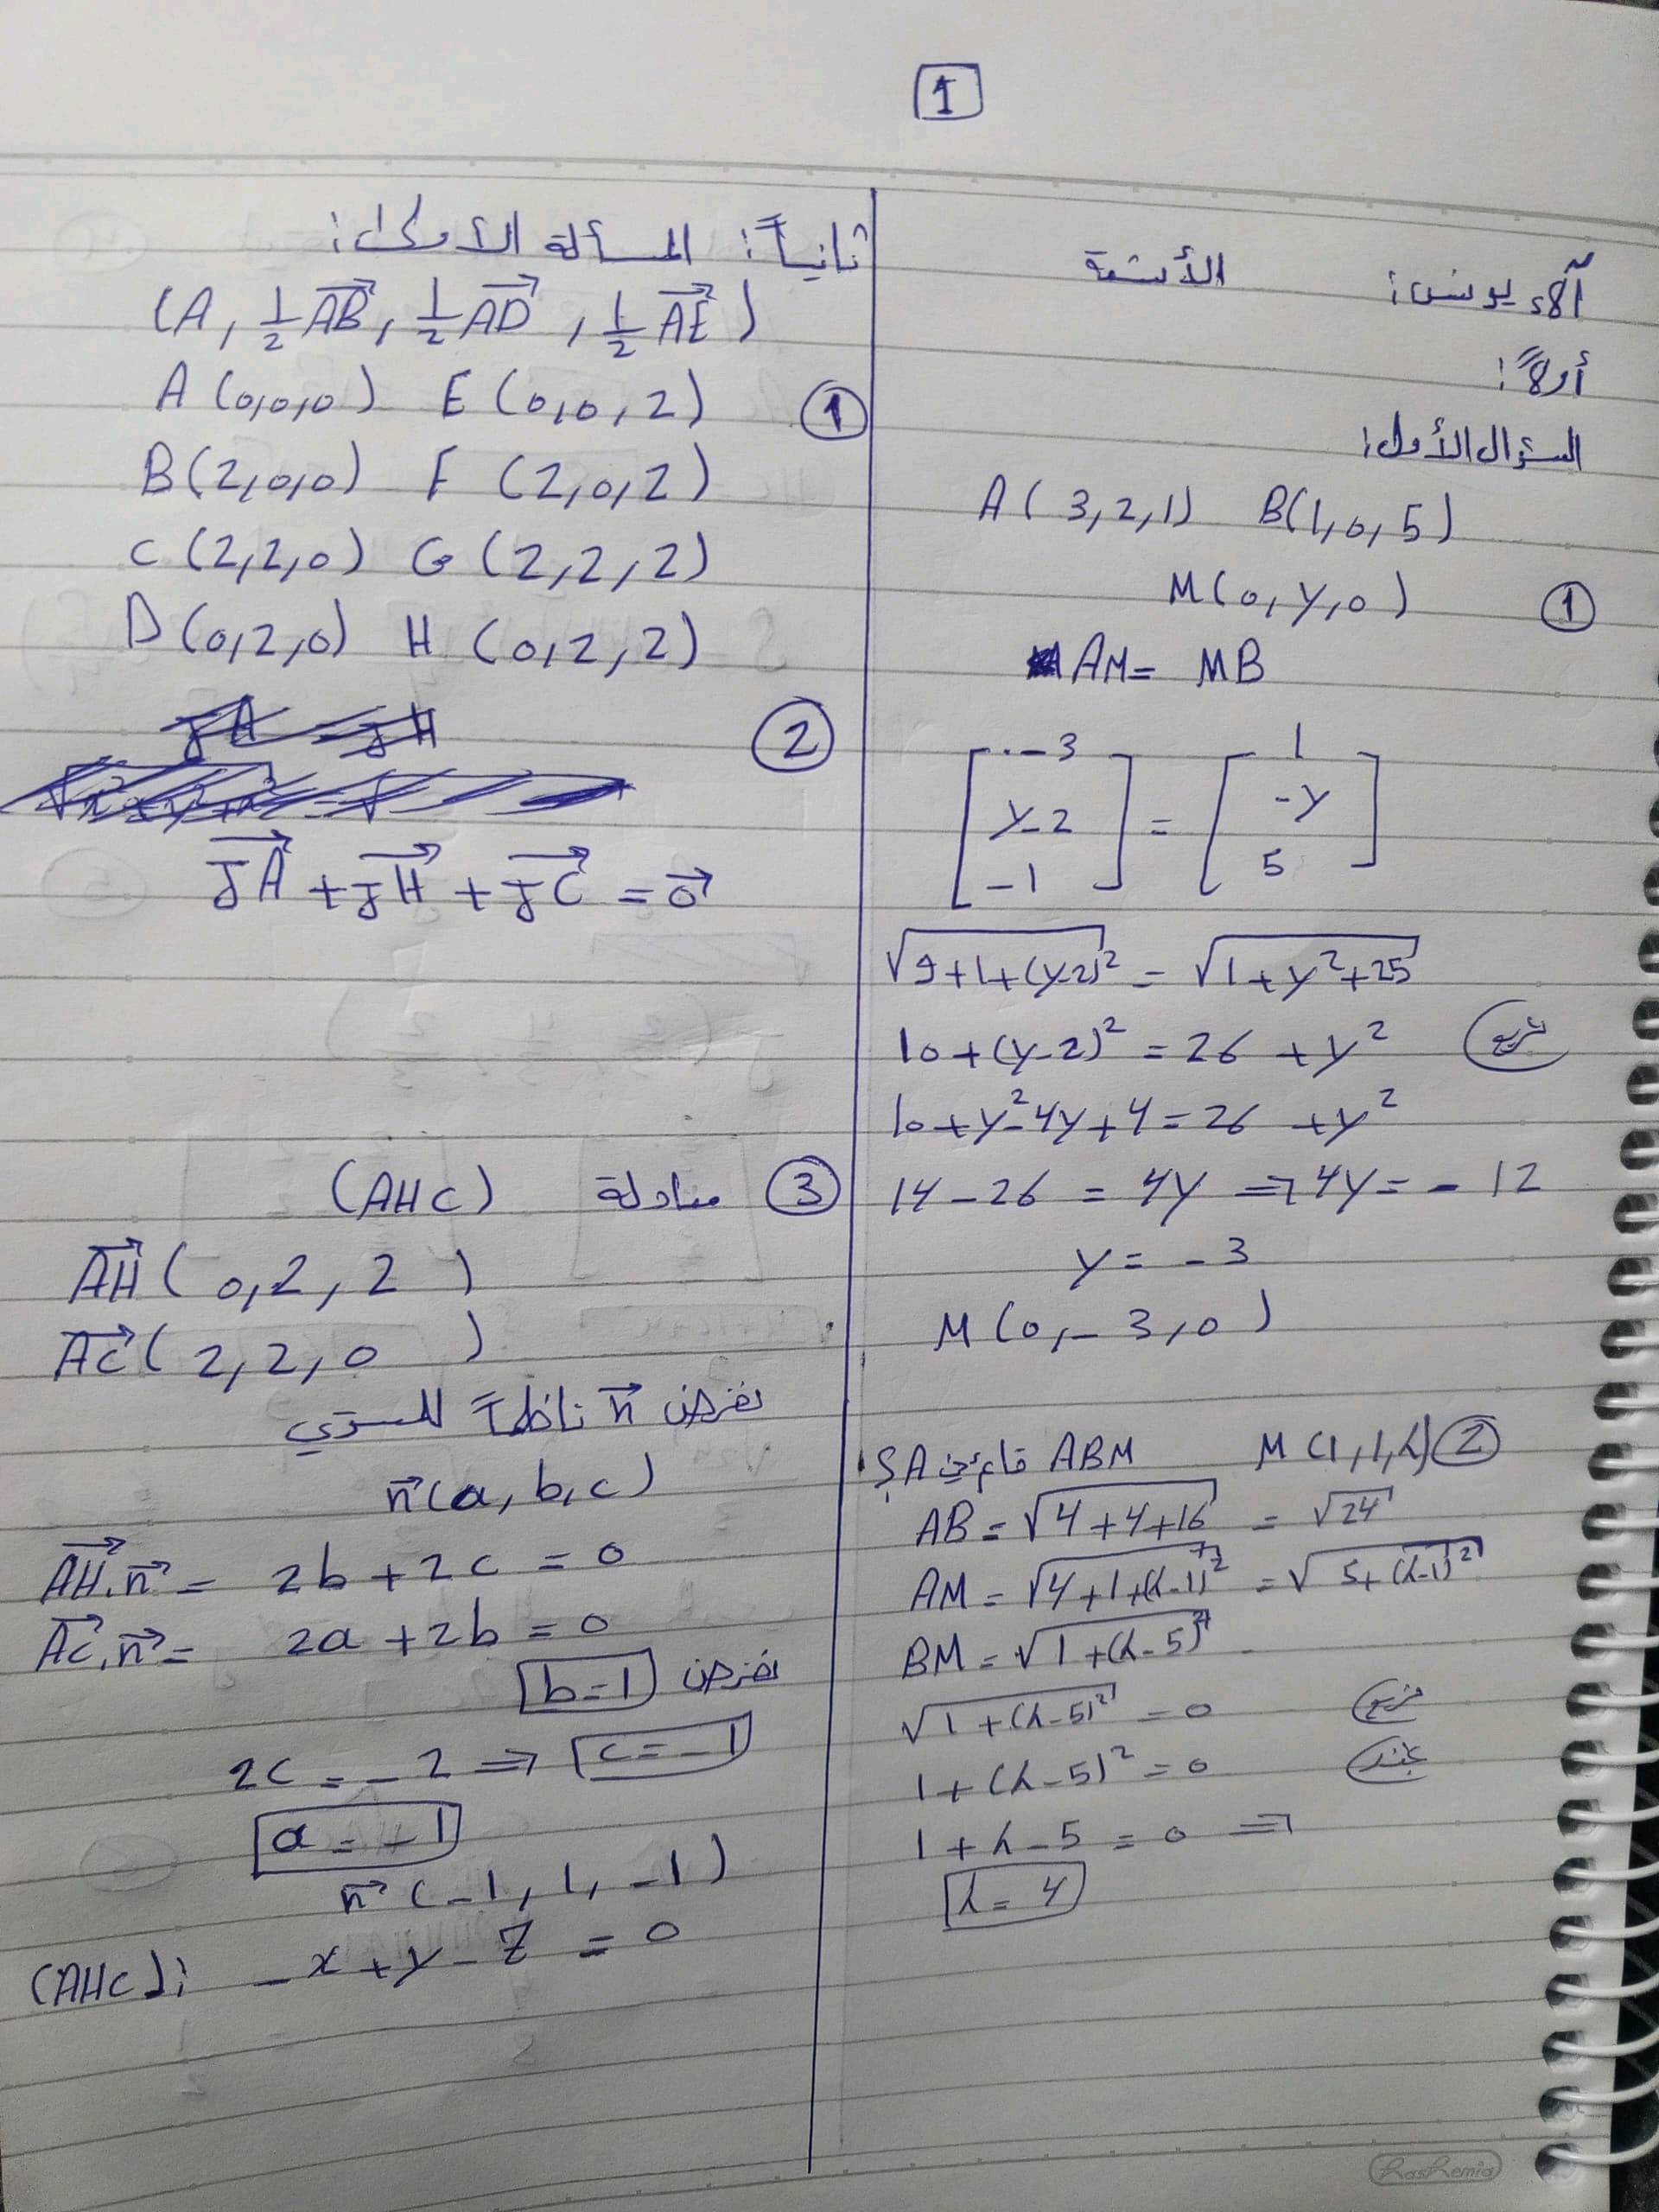 1
آلاء يونس: الأشعة
أولاً:
السؤال الأول:
A(3,2,1) B(1,0,5)
① M(0,y,0)
AM = MB
[-3
y-2
-1] = [1
-y
5]
√9+1+(y-2)² = √1+y²+25
10+(y-2)² = 26+y² نربع
10+y²-4y+4=26+y²
14-26 = 4y ⇒ 4y = -12
y = -3
M(0,-3,0)
② M(1,1,λ) ABM قائم في A؟
AB = √4+4+16 = √24
AM = √4+1+(λ-1)² = √5+(λ-1)²
BM = √1+(λ-5)²
√1+(λ-5)² = 0 نربع
1+(λ-5)² = 0
1+λ-5 = 0 ⇒
λ = 4
ثانياً: المسألة الأولى:
(A, ½AB, ½AD, ½AE)
① A(0,0,0) E(0,0,2)
B(2,0,0) F(2,0,2)
C(2,2,0) G(2,2,2)
D(0,2,0) H(0,2,2)
②
JA + JH + JC = 0
③ معادلة (AHC)
AH(0,2,2)
AC(2,2,0)
نفرض n ناظماً للمستوي
n(a,b,c)
AH.n = 2b+2c = 0
AC.n = 2a+2b = 0
نفرض b=1
2c = -2 ⇒ c = -1
a = -1
n(-1,1,-1)
(AHC): -x+y-z = 0
Hashemia